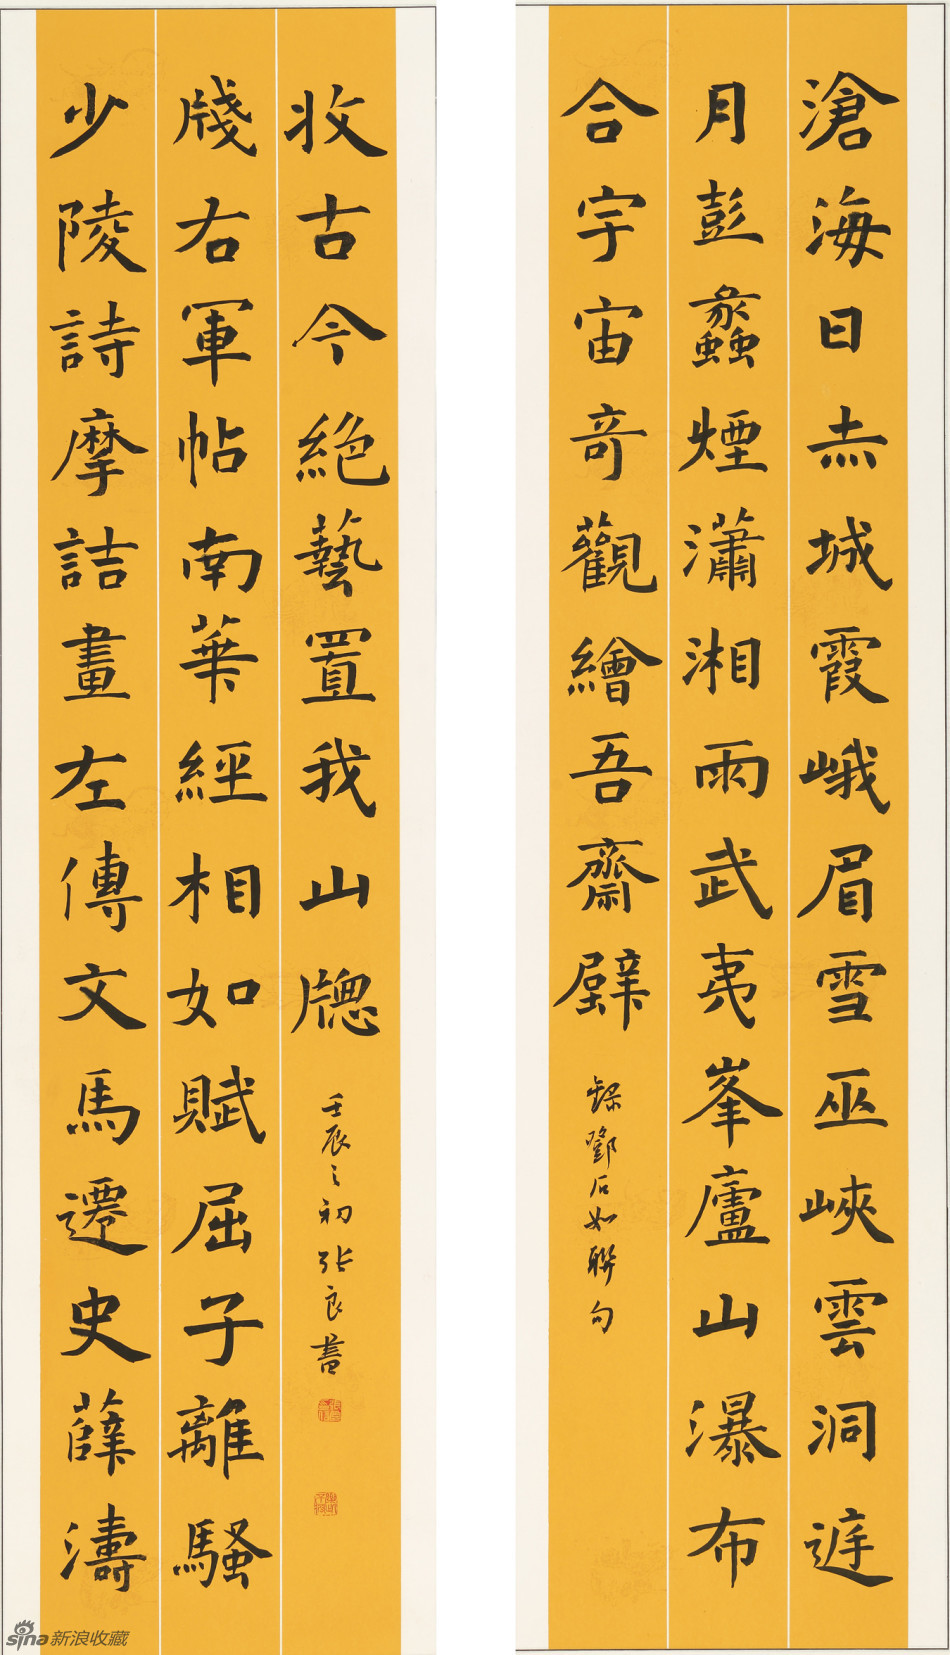 滄海日赤城霞峨眉雪巫峽雲洞庭
月彭蠡煙瀟湘雨武夷峯廬山瀑布
合宇宙奇觀繪吾齋壁
錄鄧石如聯句
少陵詩摩詰畫左傳文馬遷史薛濤
牋右軍帖南華經相如賦屈子離騷
收古今絕藝置我山牕
壬辰之初張良書
sina新浪收藏